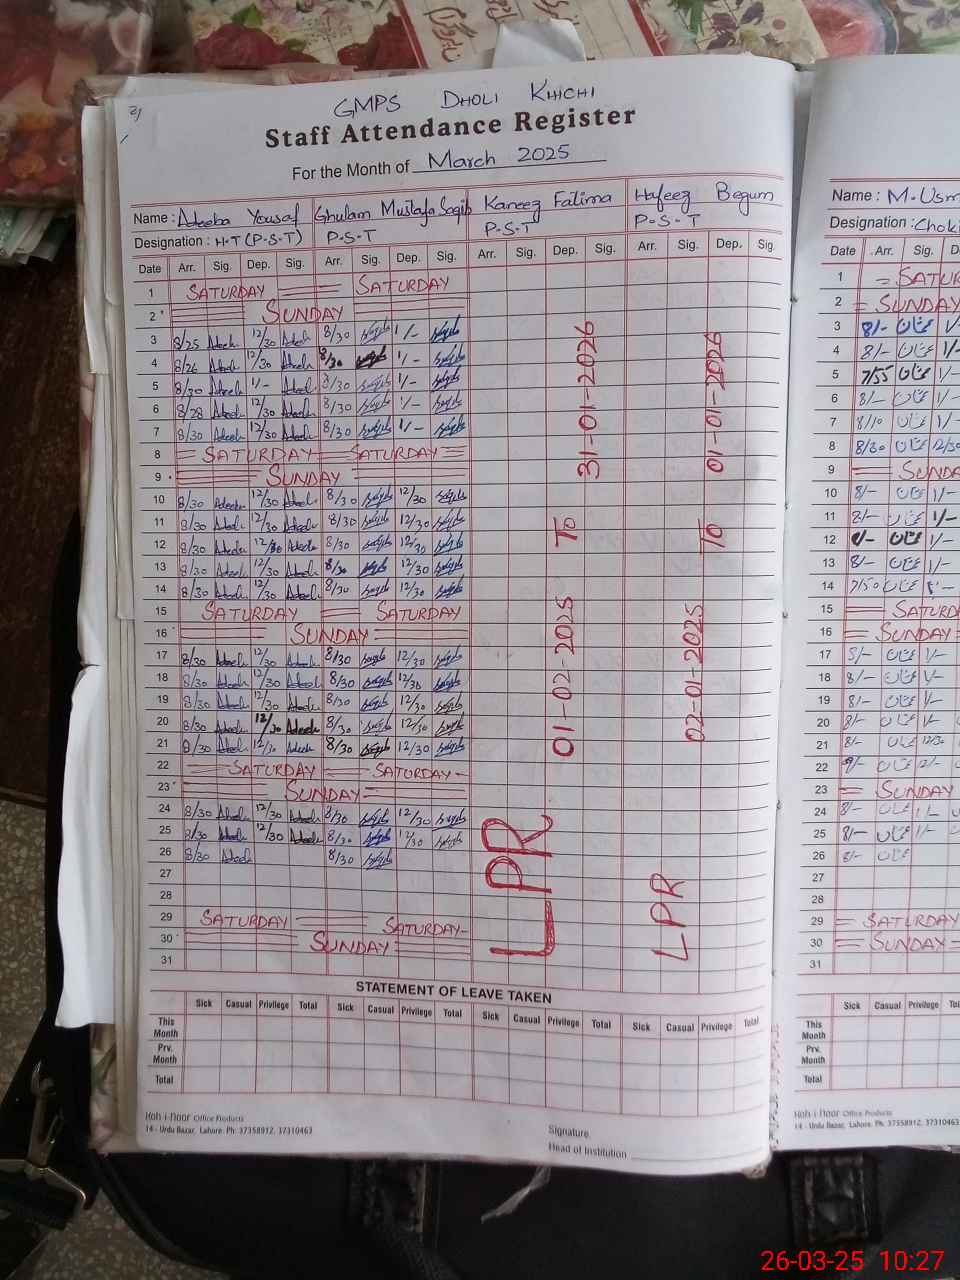 GMPS DHOLI KHICHI
Staff Attendance Register
For the Month of March 2025
Name : Adeeba Yousaf Ghulam Mustafa Saqib Kaneez Fatima Hafeez Begum
Designation : H.T (P.S.T) P.S.T P.S.T P.S.T
Date Arr. Sig. Dep. Sig. Arr. Sig. Dep. Sig. Arr. Sig. Dep. Sig. Arr. Sig. Dep. Sig.
1 SATURDAY SATURDAY
2 SUNDAY
3 8/25 12/30 8/30 1/-
4 8/26 12/30 8/30 1/-
5 8/30 1/- 8/30 1/-
6 8/28 12/30 8/30 1/-
7 8/30 12/30 8/30 1/-
8 SATURDAY SATURDAY
9 SUNDAY
10 8/30 12/30 8/30 12/30
11 8/30 12/30 8/30 12/30
12 8/30 12/30 8/30 12/30
13 8/30 12/30 8/30 12/30
14 8/30 12/30 8/30 12/30
15 SATURDAY SATURDAY
16 SUNDAY
17 8/30 12/30 8/30 12/30
18 8/30 12/30 8/30 12/30
19 8/30 12/30 8/30 12/30
20 8/30 12/30 8/30 12/30
21 8/30 12/30 8/30 12/30
22 SATURDAY SATURDAY
23 SUNDAY
24 8/30 12/30 8/30 12/30
25 8/30 12/30 8/30 12/30
26 8/30 8/30
27
28
29 SATURDAY SATURDAY
30 SUNDAY
31
LPR 01-02-2025 To 31-01-2026
LPR 02-01-2025 To 01-01-2026
STATEMENT OF LEAVE TAKEN
Sick Casual Privilege Total Sick Casual Privilege Total Sick Casual Privilege Total Sick Casual Privilege Total
This Month
Prv. Month
Total
Koh-i-Noor Office Products
14 - Urdu Bazar, Lahore. Ph: 37358912, 37310463
Signature
Head of Institution
Name : M. Usm
Designation : Choki
Date Arr. Sig.
1 SATUR
2 SUNDAY
3 8/- عثمان 1/-
4 8/- عثمان 1/-
5 7/55 عثمان 1/-
6 8/- عثمان 1/-
7 8/10 عثمان 1/-
8 8/30 عثمان 12/30
9 SUNDA
10 8/- عثمان 1/-
11 8/- عثمان 1/-
12 عثمان 1/-
13 8/- عثمان 1/-
14 7/50 عثمان
15 SATURD
16 SUNDAY
17 8/- عثمان 1/-
18 8/- عثمان 1/-
19 8/- عثمان 1/-
20 8/- عثمان 1/-
21 8/- عثمان 12/30
22 عثمان
23 SUNDAY
24 8/- عثمان 1/-
25 8/- عثمان 1/-
26 8/- عثمان
27
28
29 SATURDAY
30 SUNDAY
31
Sick Casual Privilege Total
This Month
Prv. Month
Total
Koh-i-Noor Office Products
14 - Urdu Bazar, Lahore. Ph: 37358912, 37310463
26-03-25 10:27